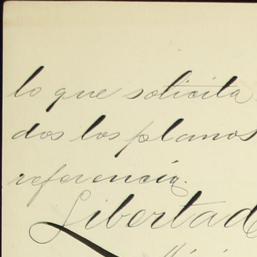 lo que solicita
dos los planos
referencia.
Libertad